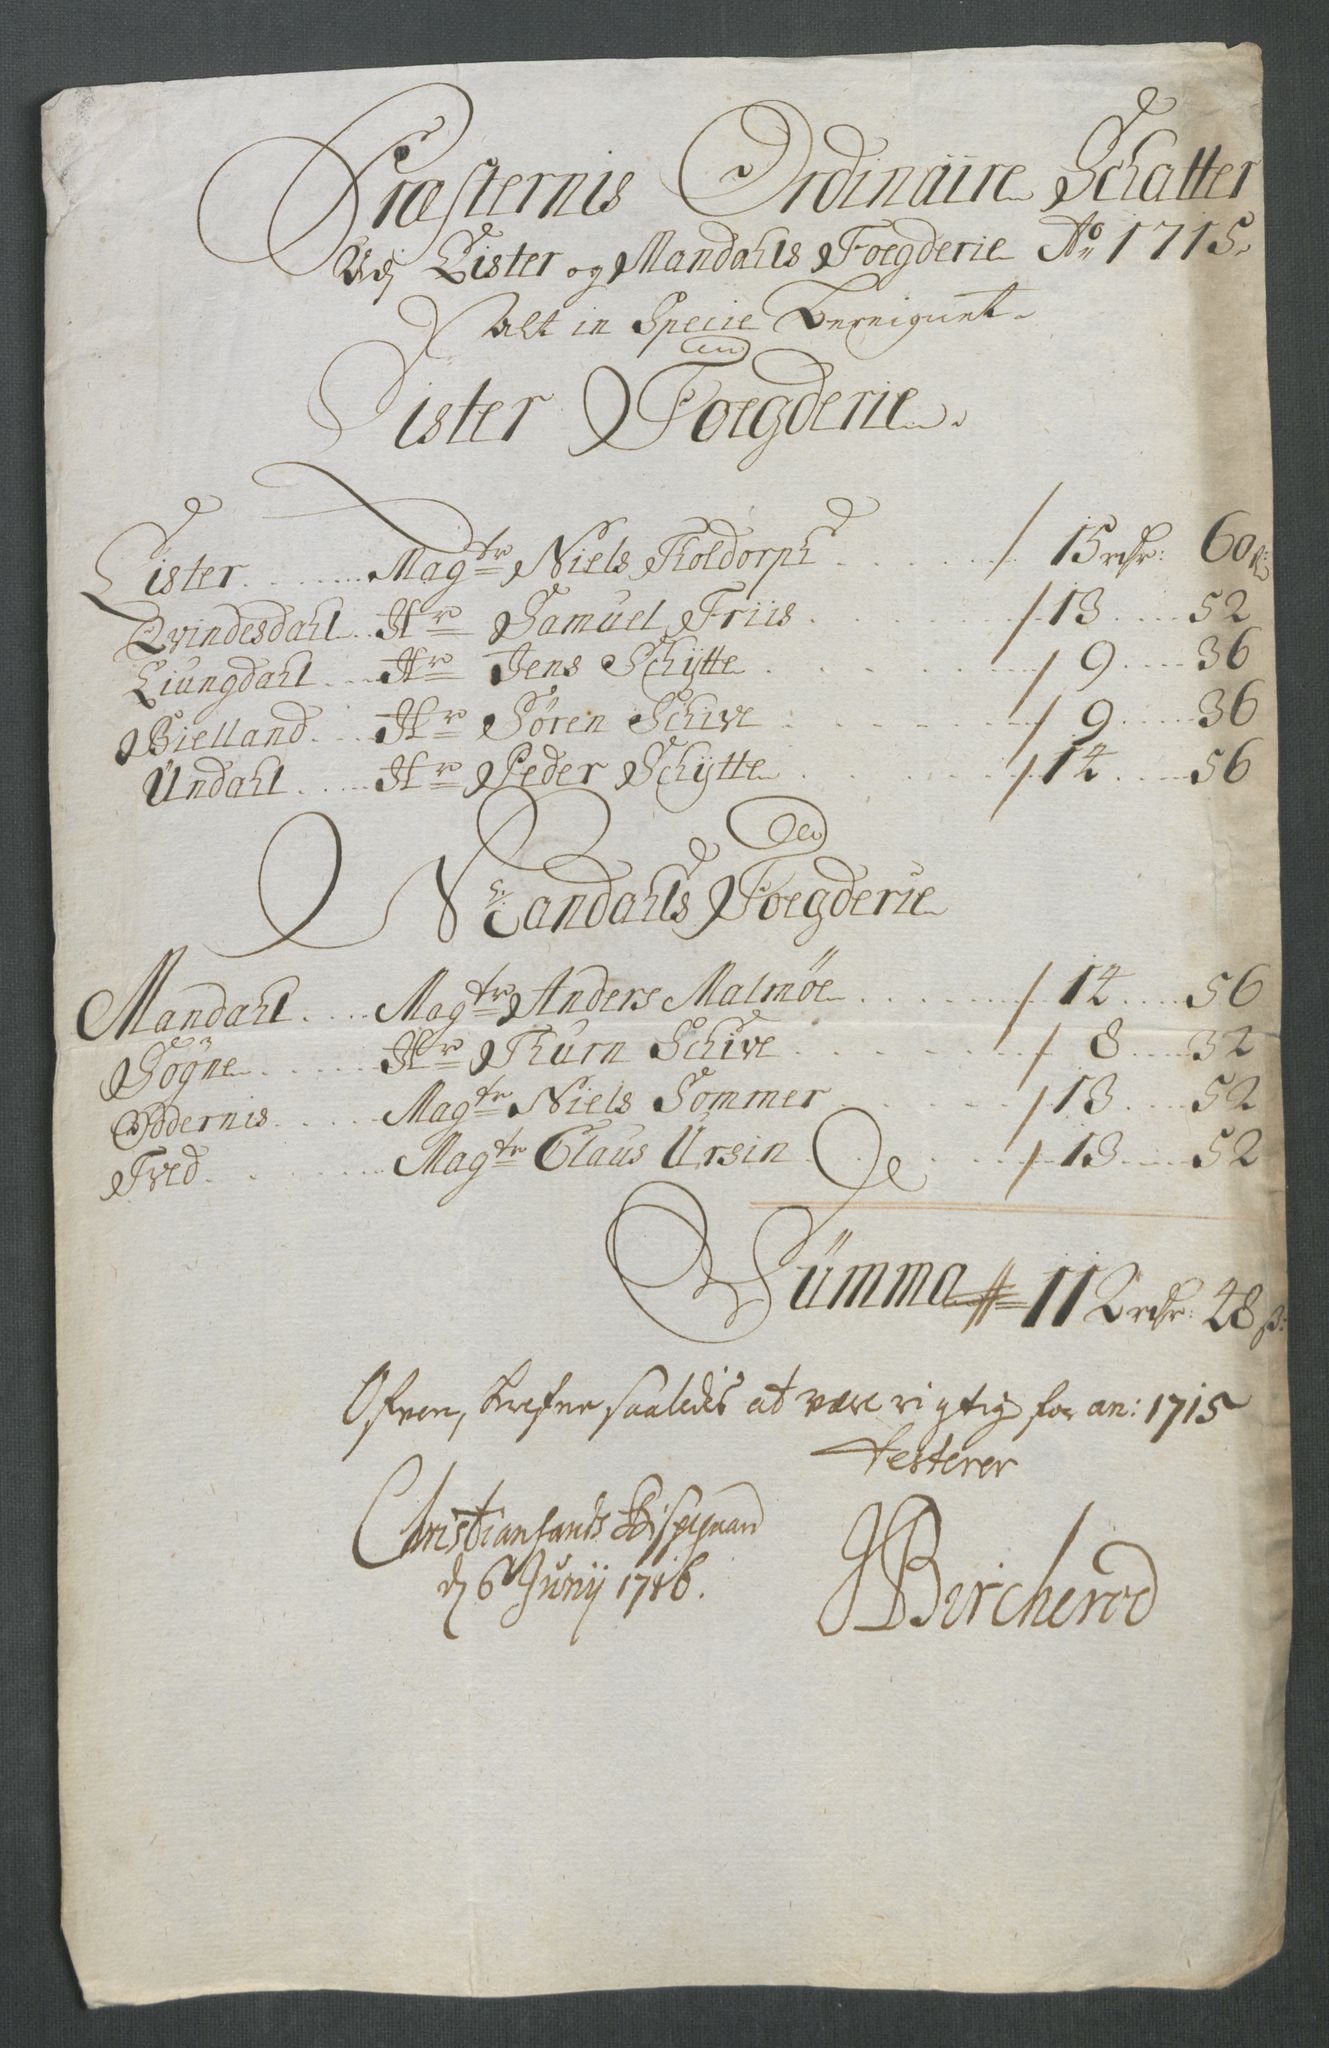 Præsternis Ordinaire Schatter
Udj Lister og Mandahls Foegderie Ao 1715.
Alt in Specie Bereignet.
Lister Foegderie.
Lister Magtr Niels Toldorph 15 rdr: 60 s:
Qvindesdahl Hr Samuel Friis 13 52
Liungdahl Hr Jens Schÿtte 9 36
Bielland Hr Sören Schive 9 36
Undahl Hr Peder Schÿtte 14 56
Mandahls Foegderie
Mandahl Magtr Anders Malmöe 14 56
Sögne Hr Thurn Schive 8 32
Oddernis Magtr Niels Sommer 13 52
Tved Magtr Claus Ursin 13 52
Summa 112 rdr: 48 s:
Ofven, saaledis at være rigtig for an: 1715
testerer
Christiansands Bispegaard
d 6 Junij 1716.
JBircherod